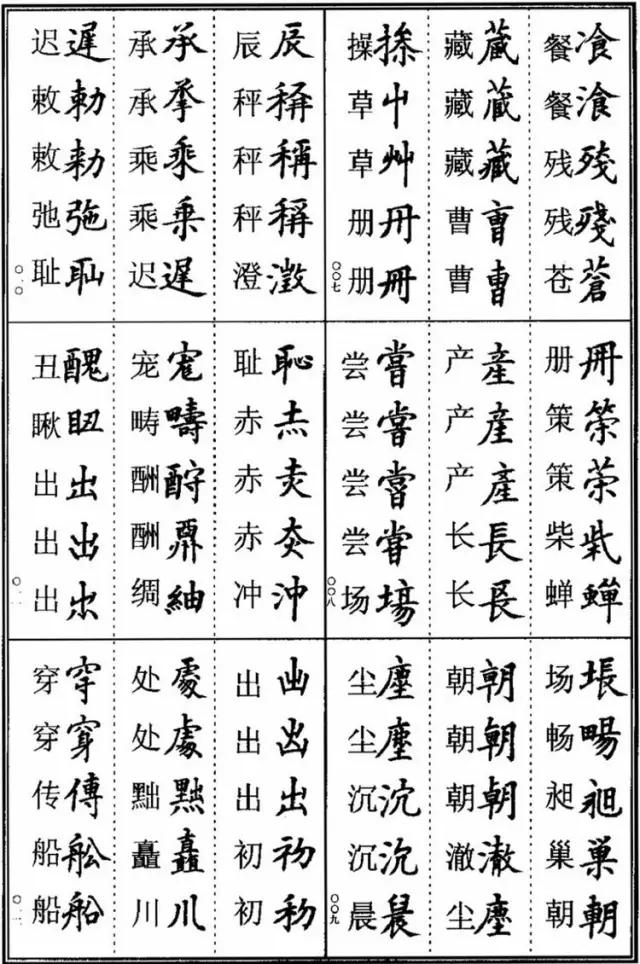 餐飡
餐湌
残殘
残殘
苍蒼
藏蔵
藏蔵
藏藏
曹曺
曹曹
操
草屮
草艸
册冊
册冊
〇〇七
册冊
策筞
策
柴
蝉蟬
产產
产產
产產
长長
长長
尝嘗
尝嘗
尝嘗
尝甞
场塲
〇〇八
场
畅暢
昶昶
巢巣
朝朝
朝朝
朝朝
朝朝
澈澈
尘塵
尘塵
尘塵
沉沈
沉沉
晨
〇〇九
辰辰
秤稱
秤稱
秤稱
澄澂
承承
承
乘乗
乘乗
迟遅
迟遲
敕勅
敕勅
弛
耻
〇一〇
耻恥
赤
赤
赤
冲沖
宠
畴疇
酬
酬
绸紬
丑醜
瞅
出出
出出
出
〇一一
出
出
出出
初初
初
处處
处處
黜
矗矗
川川
穿穿
穿
传傳
船舩
船船
〇一二